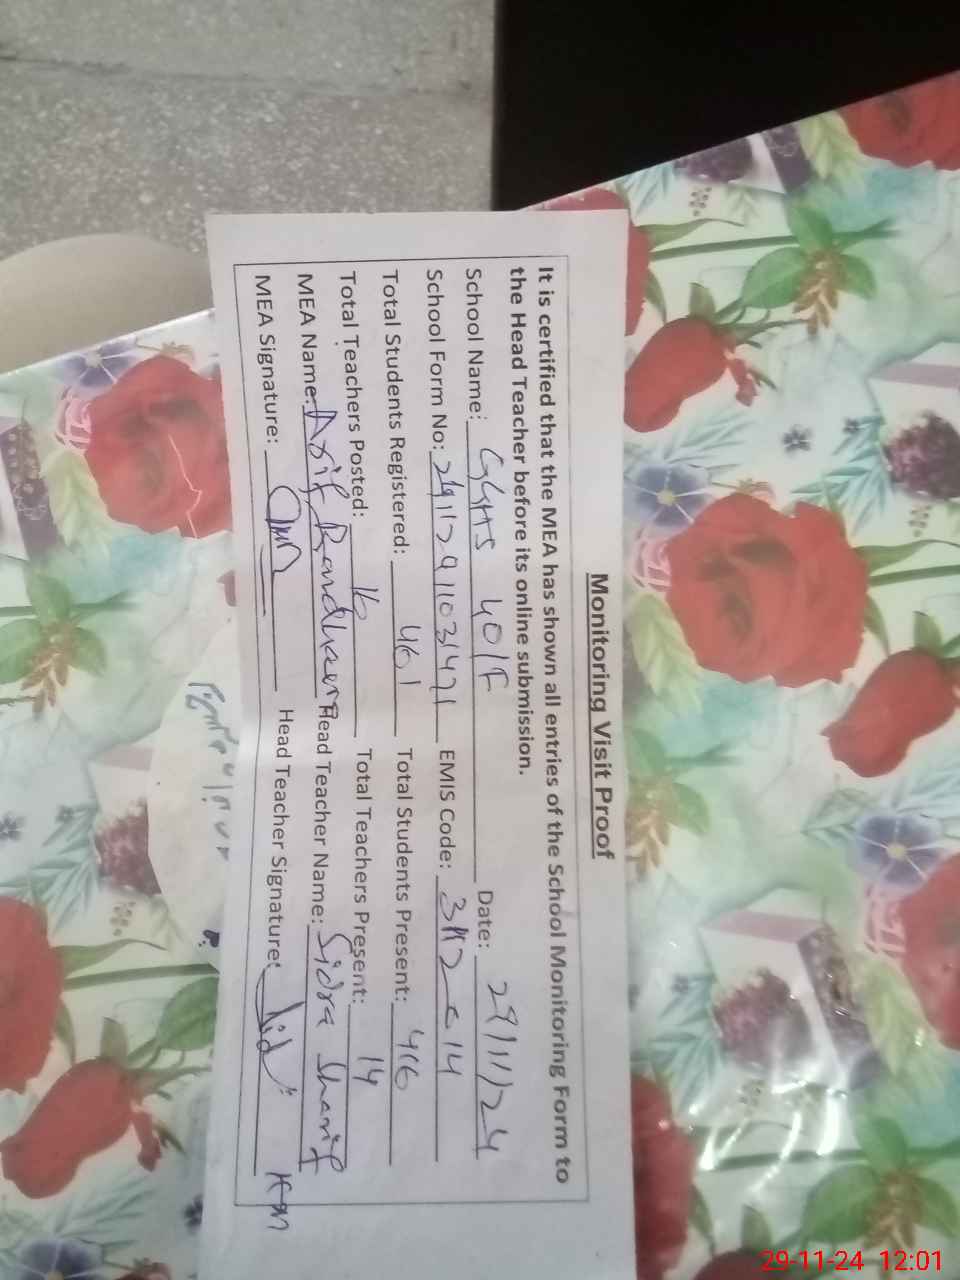 Monitoring Visit Proof
It is certified that the MEA has shown all entries of the School Monitoring Form to
the Head Teacher before its online submission.
School Name: GGHS 40/F Date: 29/11/24
School Form No: EMIS Code:
Total Students Registered: 461 Total Students Present: 416
Total Teachers Posted: 16 Total Teachers Present: 14
MEA Name: Asif Randhawa Head Teacher Name: Sidra Sharif
MEA Signature: Head Teacher Signature:
29-11-24 12:01